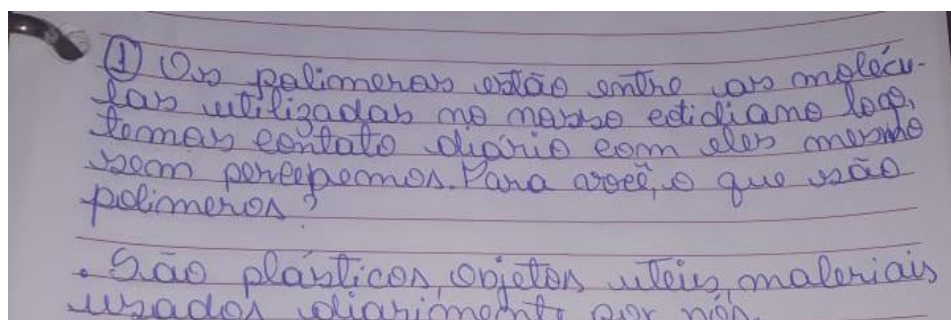 ① Os polimeros estão entre as molécu-
las utilizadas no nosso cotidiano logo,
temos contato diário com eles mesmo
sem percepemos. Para você, o que são
polimeros?
• São plásticos, objetos uteis, materiais
usados diariamente por nós.